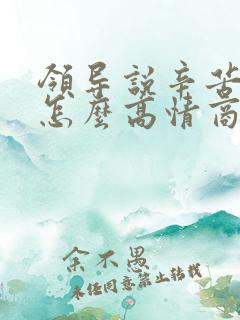 領导說辛苦
怎麽高情商
余不愚
未经同意禁止转载